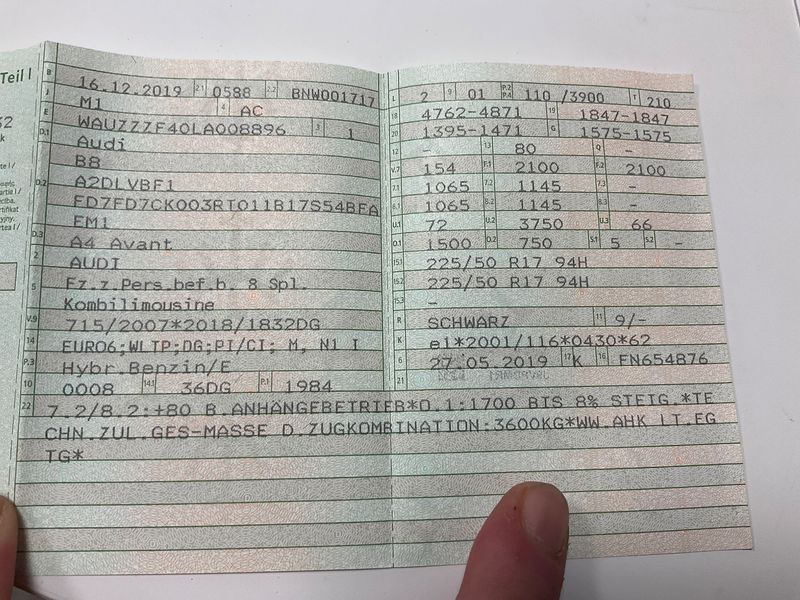 Teil I
B 16.12.2019 2.1 0588 2.2 BNW001717
J M1 4 AC
E WAUZZZF40LA008896 3 1
D.1 Audi
B8
D.2 A2DLVBF1
FD7FD7CK003RT011B17S54BFA
EM1
D.3 A4 Avant
2 AUDI
5 Fz.z.Pers.bef.b. 8 Spl.
Kombilimousine
V.9 715/2007*2018/1832DG
14 EURO6;WLTP;DG;PI/CI; M, N1 I
P.3 Hybr.Benzin/E
10 0008 14.1 36DG P.1 1984
L 2 9 01 P.2 P.4 110 /3900 T 210
18 4762-4871 19 1847-1847
20 1395-1471 G 1575-1575
12 - 13 80 Q -
V.7 154 F.1 2100 F.2 2100
7.1 1065 7.2 1145 7.3 -
8.1 1065 8.2 1145 8.3 -
U.1 72 U.2 3750 U.3 66
O.1 1500 O.2 750 S.1 5 S.2 -
15.1 225/50 R17 94H
15.2 225/50 R17 94H
15.3 -
R SCHWARZ 11 9/-
K e1*2001/116*0430*62
6 27.05.2019 17 K 16 FN654876
21
22 7.2/8.2:+80 B.ANHÄNGEBETRIEB*O.1:1700 BIS 8% STEIG.*TE
CHN.ZUL.GES-MASSE D.ZUGKOMBINATION:3600KG*WW.AHK LT.EG
TG*